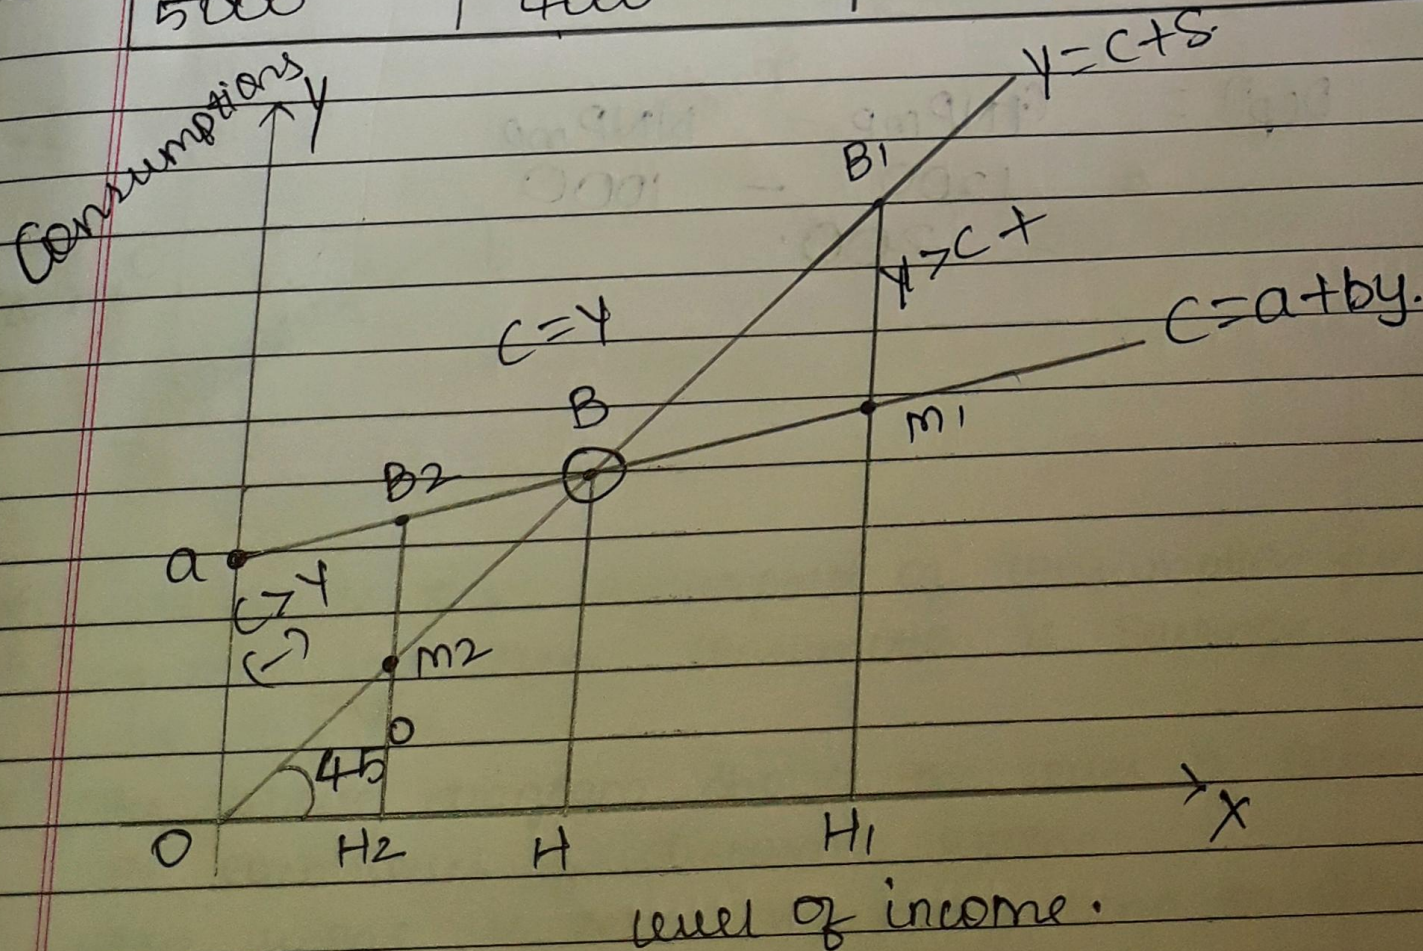 5000 4000
Consumptions
Y
Y=C+S.
B1
Y>C +
C=Y
C=a+by.
B
M1
B2
a
C>Y
(-)
M2
45°
O
H2
H
H1
X
level of income.